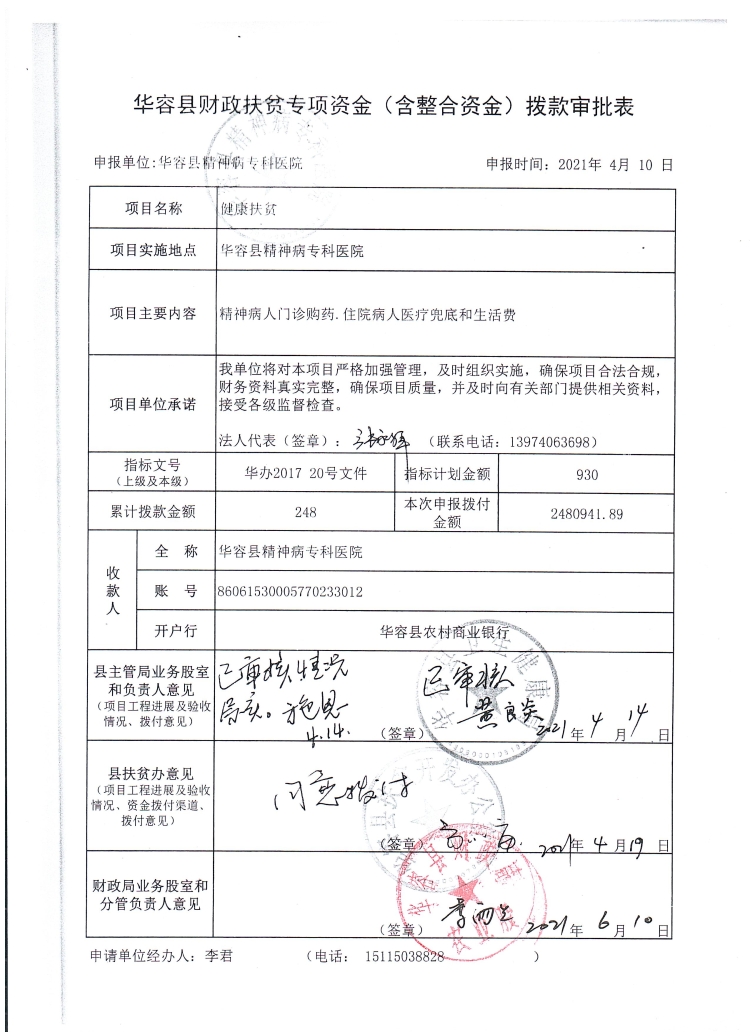 华容县财政扶贫专项资金（含整合资金）拨款审批表
申报单位:华容县精神病专科医院 申报时间：2021年 4月 10 日
项目名称 健康扶贫
项目实施地点 华容县精神病专科医院
项目主要内容 精神病人门诊购药.住院病人医疗兜底和生活费
项目单位承诺
我单位将对本项目严格加强管理，及时组织实施，确保项目合法合规，
财务资料真实完整，确保项目质量，并及时向有关部门提供相关资料，
接受各级监督检查。
法人代表（签章）： （联系电话：13974063698）
指标文号
（上级及本级）
华办2017 20号文件
指标计划金额 930
累计拨款金额 248
本次申报拨付
金额
2480941.89
收款人
全 称 华容县精神病专科医院
账 号 86061530005770233012
开户行 华容县农村商业银行
县主管局业务股室
和负责人意见
（项目工程进展及验收
情况、拨付意见）
已审核情况
属实。
4.14.
已审核
（签章） 2021年 4 月 14 日
县扶贫办意见
（项目工程进展及验收
情况、资金拨付渠道、
拨付意见）
同意拨付
（签章） 2021年 4 月 19 日
财政局业务股室和
分管负责人意见
（签章） 2021年 6 月 10 日
申请单位经办人：李君 （电话： 15115038828 ）